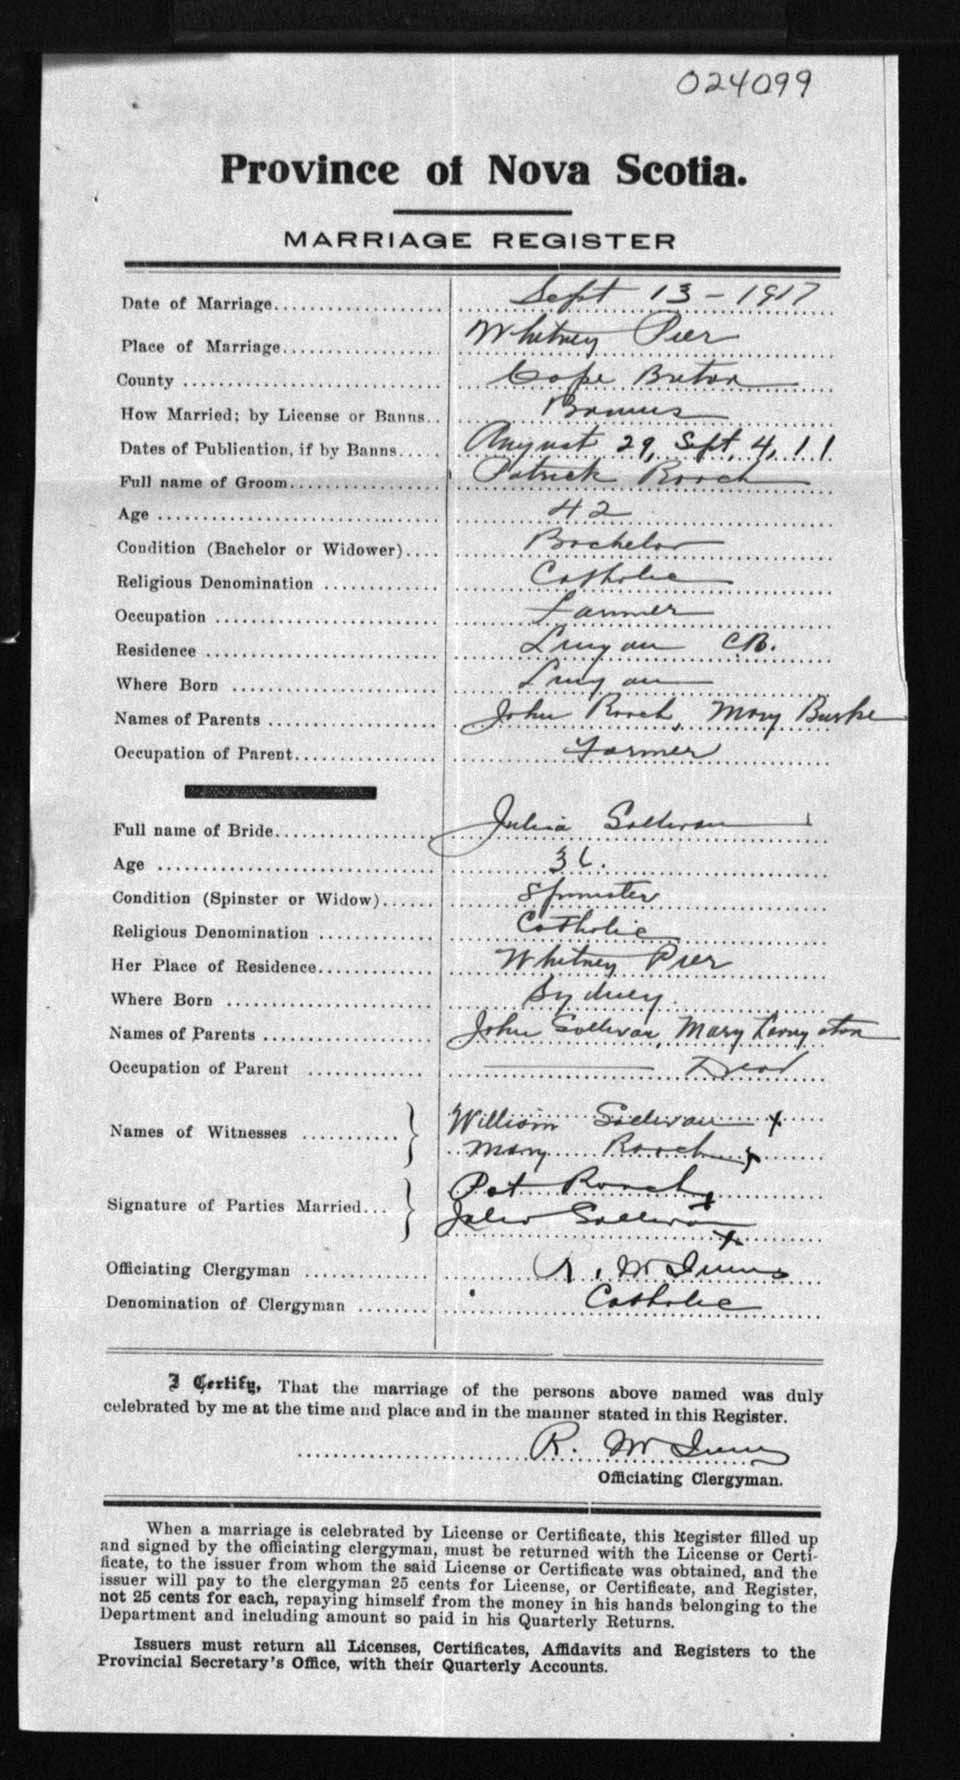 024099
Province of Nova Scotia.
MARRIAGE REGISTER
Date of Marriage.................. Sept 13 - 1917
Place of Marriage................. Whitney Pier
County ........................... Cape Breton
How Married; by License or Banns.. Banns
Dates of Publication, if by Banns..... August 29, Sept. 4, 11
Full name of Groom................ Patrick Roach
Age .............................. 42
Condition (Bachelor or Widower).... Bachelor
Religious Denomination ............ Catholic
Occupation ....................... Farmer
Residence ........................ Lingan CB.
Where Born ....................... Lingan
Names of Parents ................. John Roach, Mary Burke
Occupation of Parent................ Farmer
Full name of Bride................. Julia Sullivan
Age .............................. 36.
Condition (Spinster or Widow)...... Spinster
Religious Denomination ............ Catholic
Her Place of Residence............. Whitney Pier
Where Born ....................... Sydney.
Names of Parents ................. John Sullivan, Mary
Occupation of Parent ............ Dead
Names of Witnesses ........... } William Sullivan x
Mary Roach x
Signature of Parties Married... } Pat Roach x
Julia Sullivan x
Officiating Clergyman ............ R. McInnis
Denomination of Clergyman ........ Catholic
I Certify, That the marriage of the persons above named was duly
celebrated by me at the time and place and in the manner stated in this Register.
R. McInnis
Officiating Clergyman.
When a marriage is celebrated by License or Certificate, this Register filled up
and signed by the officiating clergyman, must be returned with the License or Certi-
ficate, to the issuer from whom the said License or Certificate was obtained, and the
issuer will pay to the clergyman 25 cents for License, or Certificate, and Register,
not 25 cents for each, repaying himself from the money in his hands belonging to the
Department and including amount so paid in his Quarterly Returns.
Issuers must return all Licenses, Certificates, Affidavits and Registers to the
Provincial Secretary's Office, with their Quarterly Accounts.